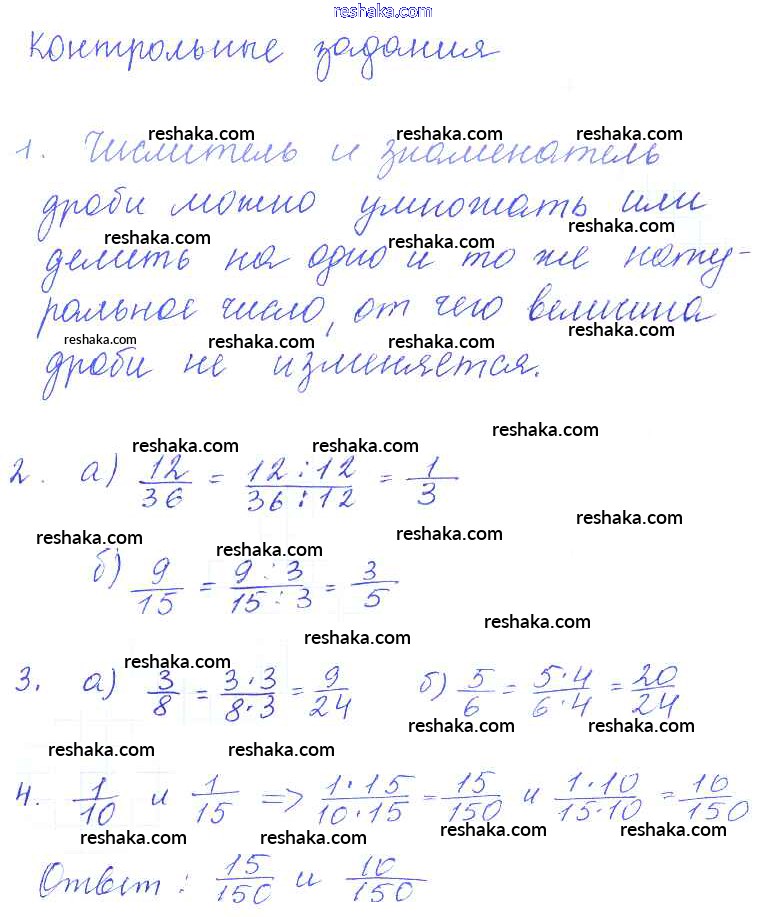 reshaka.com
Контрольные задания
reshaka.com reshaka.com reshaka.com
1. Числитель и знаменатель
дроби можно умножать или
reshaka.com reshaka.com reshaka.com
делить на одно и то же нату-
ральное число, от чего величина
reshaka.com reshaka.com reshaka.com
дроби не изменяется.
reshaka.com reshaka.com reshaka.com
2. а) 12/36 = 12:12/36:12 = 1/3
reshaka.com reshaka.com reshaka.com reshaka.com
б) 9/15 = 9:3/15:3 = 3/5
reshaka.com reshaka.com reshaka.com
3. а) 3/8 = 3·3/8·3 = 9/24 б) 5/6 = 5·4/6·4 = 20/24
reshaka.com reshaka.com reshaka.com
4. 1/10 и 1/15 => 1·15/10·15 = 15/150 и 1·10/15·10 = 10/150
reshaka.com reshaka.com reshaka.com reshaka.com
Ответ: 15/150 и 10/150